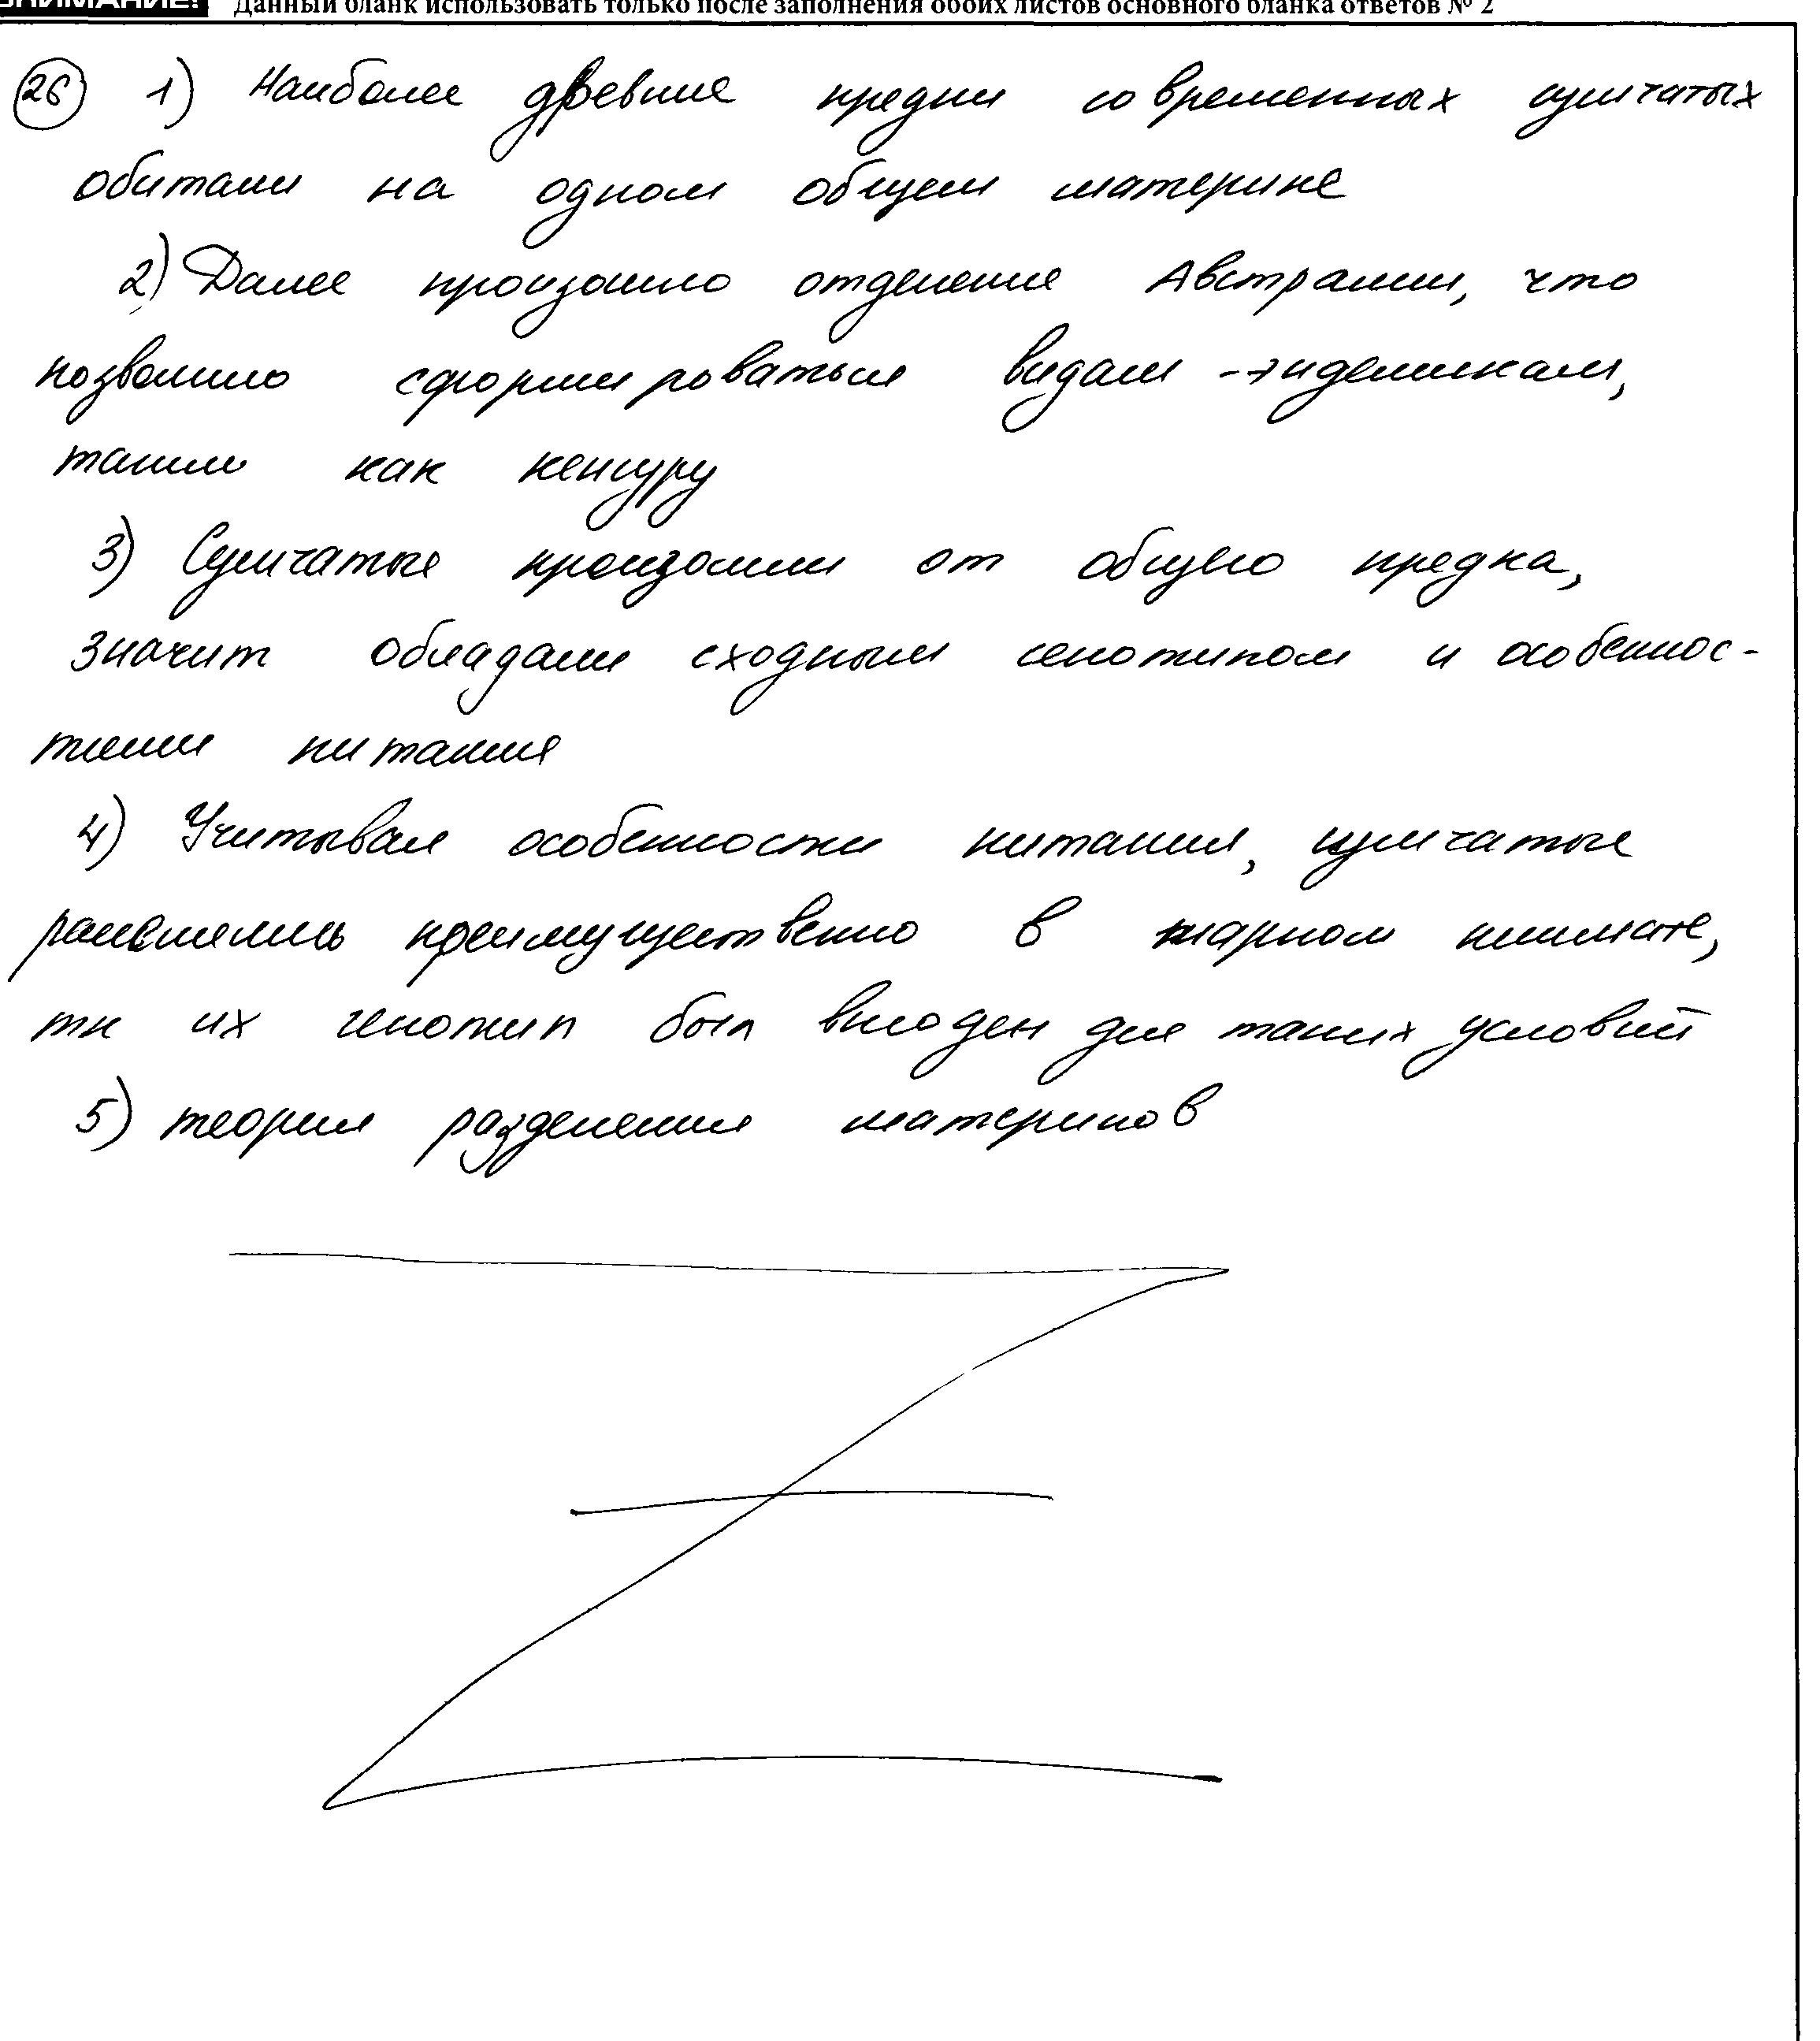 ВНИМАНИЕ! Данный бланк использовать только после заполнения обоих листов основного бланка ответов № 2
26 1) Наиболее древние предки современных сумчатых
обитали на одном общем материке
2) Далее произошло отделение Австралии, что
позволило сформироваться видам-эндемикам,
таким как кенгуру
3) Сумчатые произошли от общего предка,
значит обладали сходным генотипом и особеннос-
тями питания
4) Учитывая особенности питания, сумчатые
расселились преимущественно в жарком климате,
тк их генотип был выгоден для таких условий
5) теория разделения материков